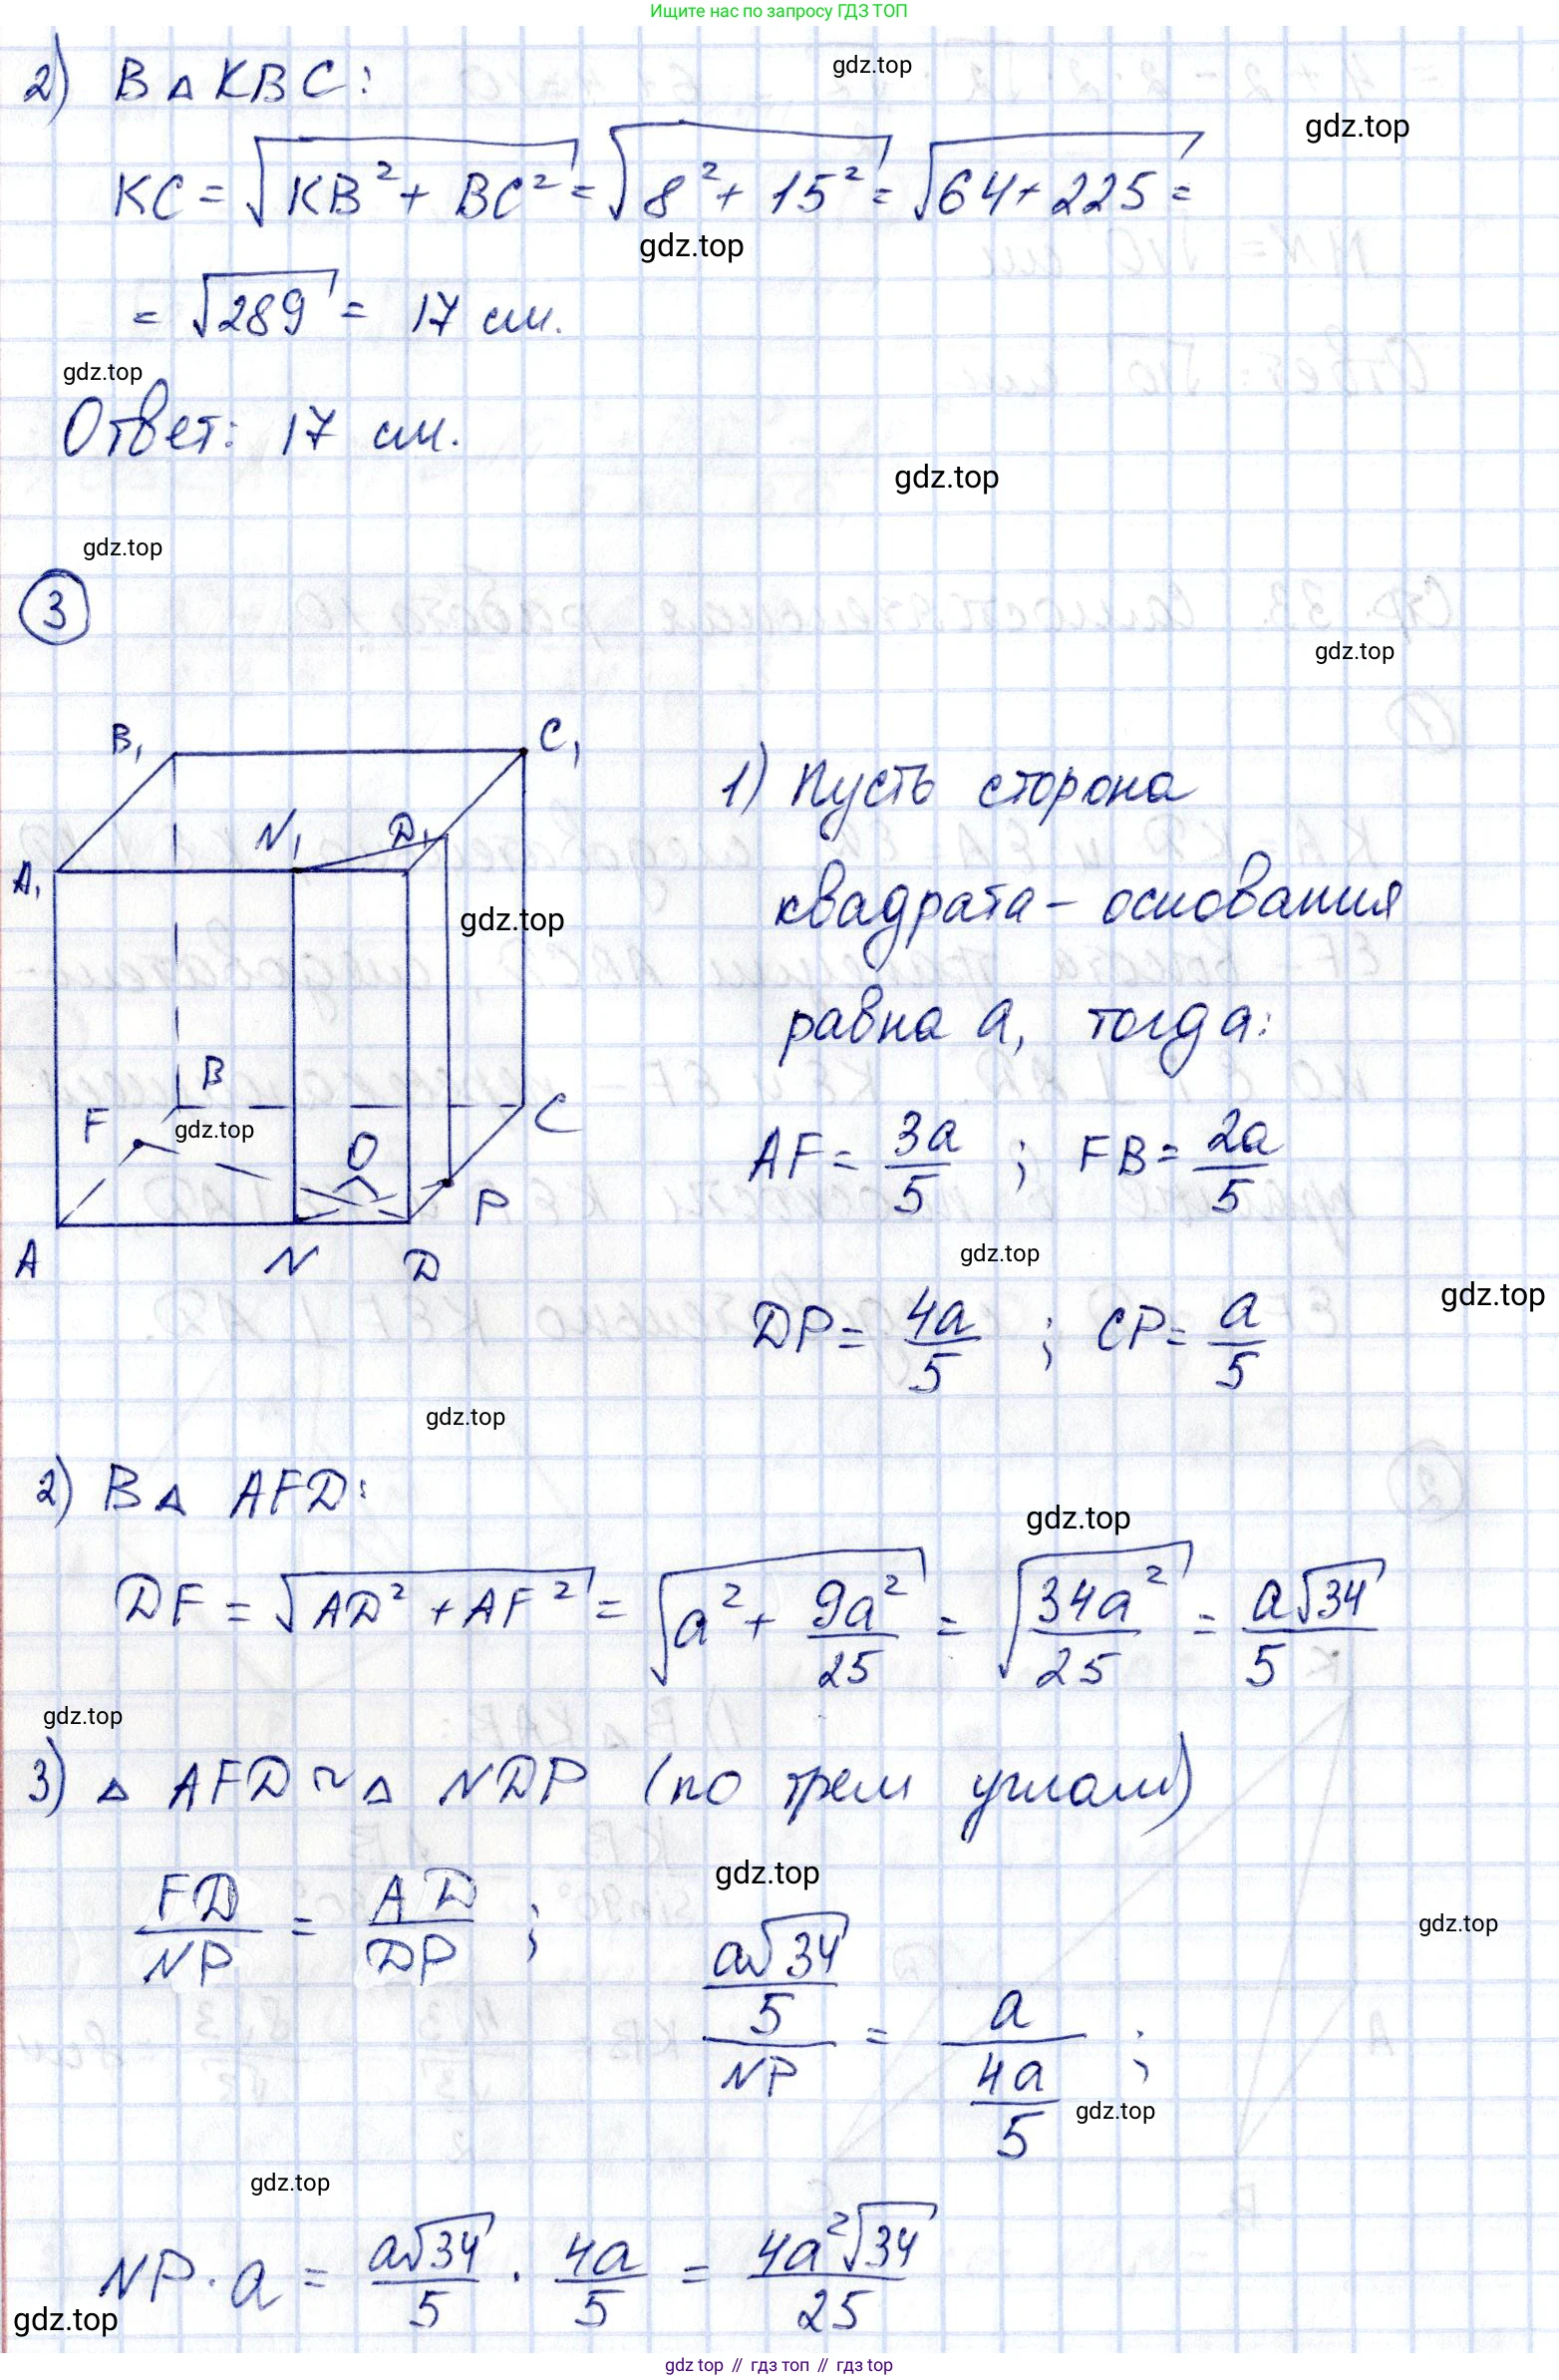 Ищите нас по запросу ГДЗ ТОП
2) В △ KBC:
gdz.top
gdz.top
KC = √(KB² + BC²) = √(8² + 15²) = √(64 + 225) =
gdz.top
= √289 = 17 см.
gdz.top
Ответ: 17 см.
gdz.top
gdz.top
3
gdz.top
B₁ C₁
N₁ D₁
A₁
gdz.top
B
F
gdz.top
O
C
P
A N D
1) Пусть сторона
квадрата – основания
равна a, тогда:
AF = 3a/5 ; FB = 2a/5
gdz.top
gdz.top
DP = 4a/5 ; CP = a/5
gdz.top
2) В △ AFD:
gdz.top
DF = √(AD² + AF²) = √(a² + 9a²/25) = √(34a²/25) = a√34/5
gdz.top
3) △ AFD ~ △ NDP (по трем углам)
gdz.top
gdz.top
FD/NP = AD/DP ; (a√34/5)/NP = a/(4a/5) ;
gdz.top
gdz.top
NP · a = a√34/5 · 4a/5 = 4a²√34/25
gdz.top
gdz.top // гдз топ // gdz.top